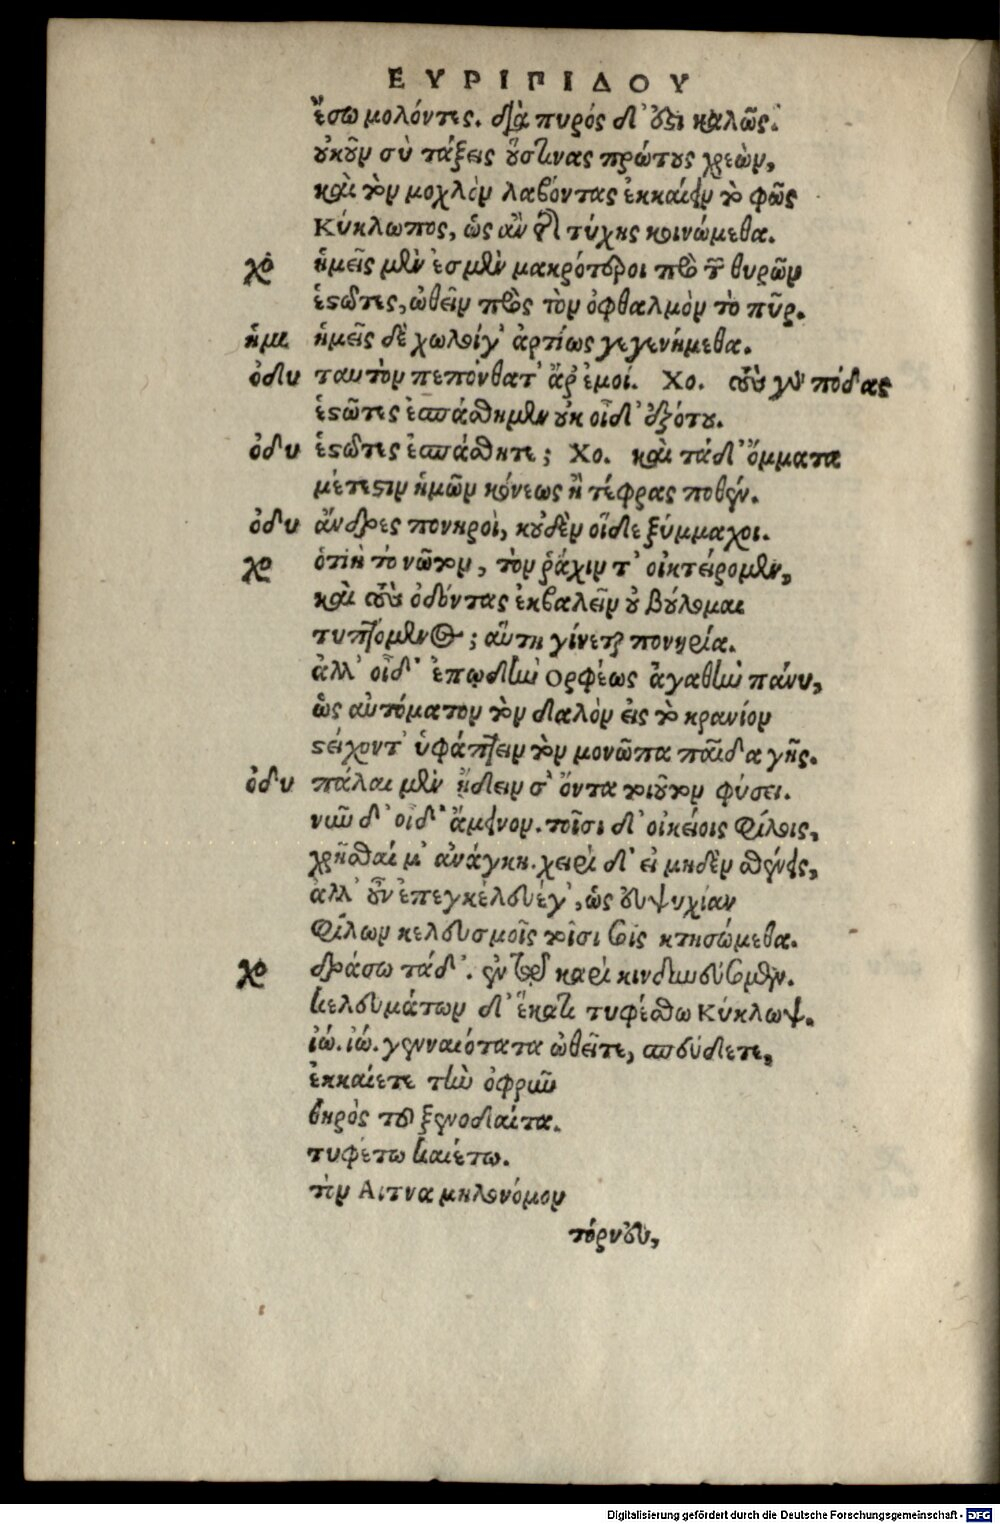 ΕΥΡΙΠΙΔΟΥ
ἔσω μολόντες. διὰ πυρός δ' ὅξι καλῶς.
οὐκοῦν σὺ τάξεις οὕστινας πρώτους χρεὼν,
καὶ τὸν μοχλὸν λαβόντας ἐκκαίειν τὸ φῶς
Κύκλωπος, ὡς ἂν τῆς τύχης κοινώμεθα.
χο ἡμεῖς μὲν ἐσμὲν μακρότεροι πρὸ τῶν θυρῶν
ἑστῶτες, ὠθεῖν πρὸς τὸν ὀφθαλμὸν τὸ πῦρ.
ἡμι ἡμεῖς δὲ χωλοίγ' ἀρτίως γεγενήμεθα.
ὀδυ ταυτὸν πεπόνθατ' ἄρ' ἐμοί. Χο. τοὺς γὰρ πόδας
ἑστῶτες ἐσπάσθημεν οὐκ οἶδ' ἐξότου.
ὀδυ ἑστῶτες ἐσπάσθητε; Χο. καὶ τάδ' ὄμματα
μέτεστιν ἡμῶν κόνεως ἢ τέφρας ποθέν.
ὀδυ ἄνδρες πονηροὶ, κοὐδὲν οἵδε ξύμμαχοι.
χο ὁτιὴ τὸ νῶτον, τὸν ῥάχιν τ' οἰκτείρομεν,
καὶ τοὺς ὀδόντας ἐκβαλεῖν οὐ βούλομαι
τυπτόμενος; αὕτη γίνεται πονηρία.
ἀλλ' οἶδ' ἐπῳδὴν Ορφέως ἀγαθὴν πάνυ,
ὡς αὐτόματον τὸν δαλὸν εἰς τὸ κρανίον
στείχοντ' ὑφάπτειν τὸν μονῶπα παῖδα γῆς.
ὀδυ πάλαι μὲν ᾔδειν σ' ὄντα τοιοῦτον φύσει.
νῦν δ' οἶδ' ἄμεινον. τοῖσι δ' οἰκείοις φίλοις,
χρῆσθαί μ' ἀνάγκη. χειρὶ δ' εἰ μηδὲν σθένεις,
ἀλλ' οὖν ἐπεγκέλευέγ', ὡς εὐψυχίαν
φίλων κελευσμοῖς τοῖσι σοῖς κτησώμεθα.
χο δράσω τάδ'. ἐν τῷ καρὶ κινδυνεύσομεν.
κελευμάτων δ' ἕκατι τυφέσθω Κύκλωψ.
ἰώ. ἰώ. γενναιότατα ὠθεῖτε, σπεύδετε,
ἐκκαίετε τὴν ὀφρὺν
θηρὸς τοῦ ξενοδαίτα.
τυφέτω καιέτω.
τὸν Αιτνα μηλονόμον
τόρνευ,